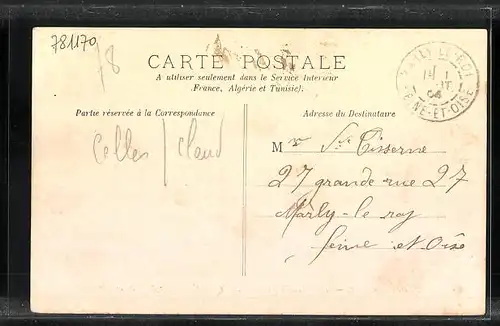 781170
78
CARTE POSTALE
A utiliser seulement dans le Service Intérieur
(France, Algérie et Tunisie).
Partie réservée à la Correspondance
Adresse du Destinataire
MARLY-LE-ROI
SEINE-ET-OISE
Mr
27 grande rue 27
Marly-le roy
Seine et Oise